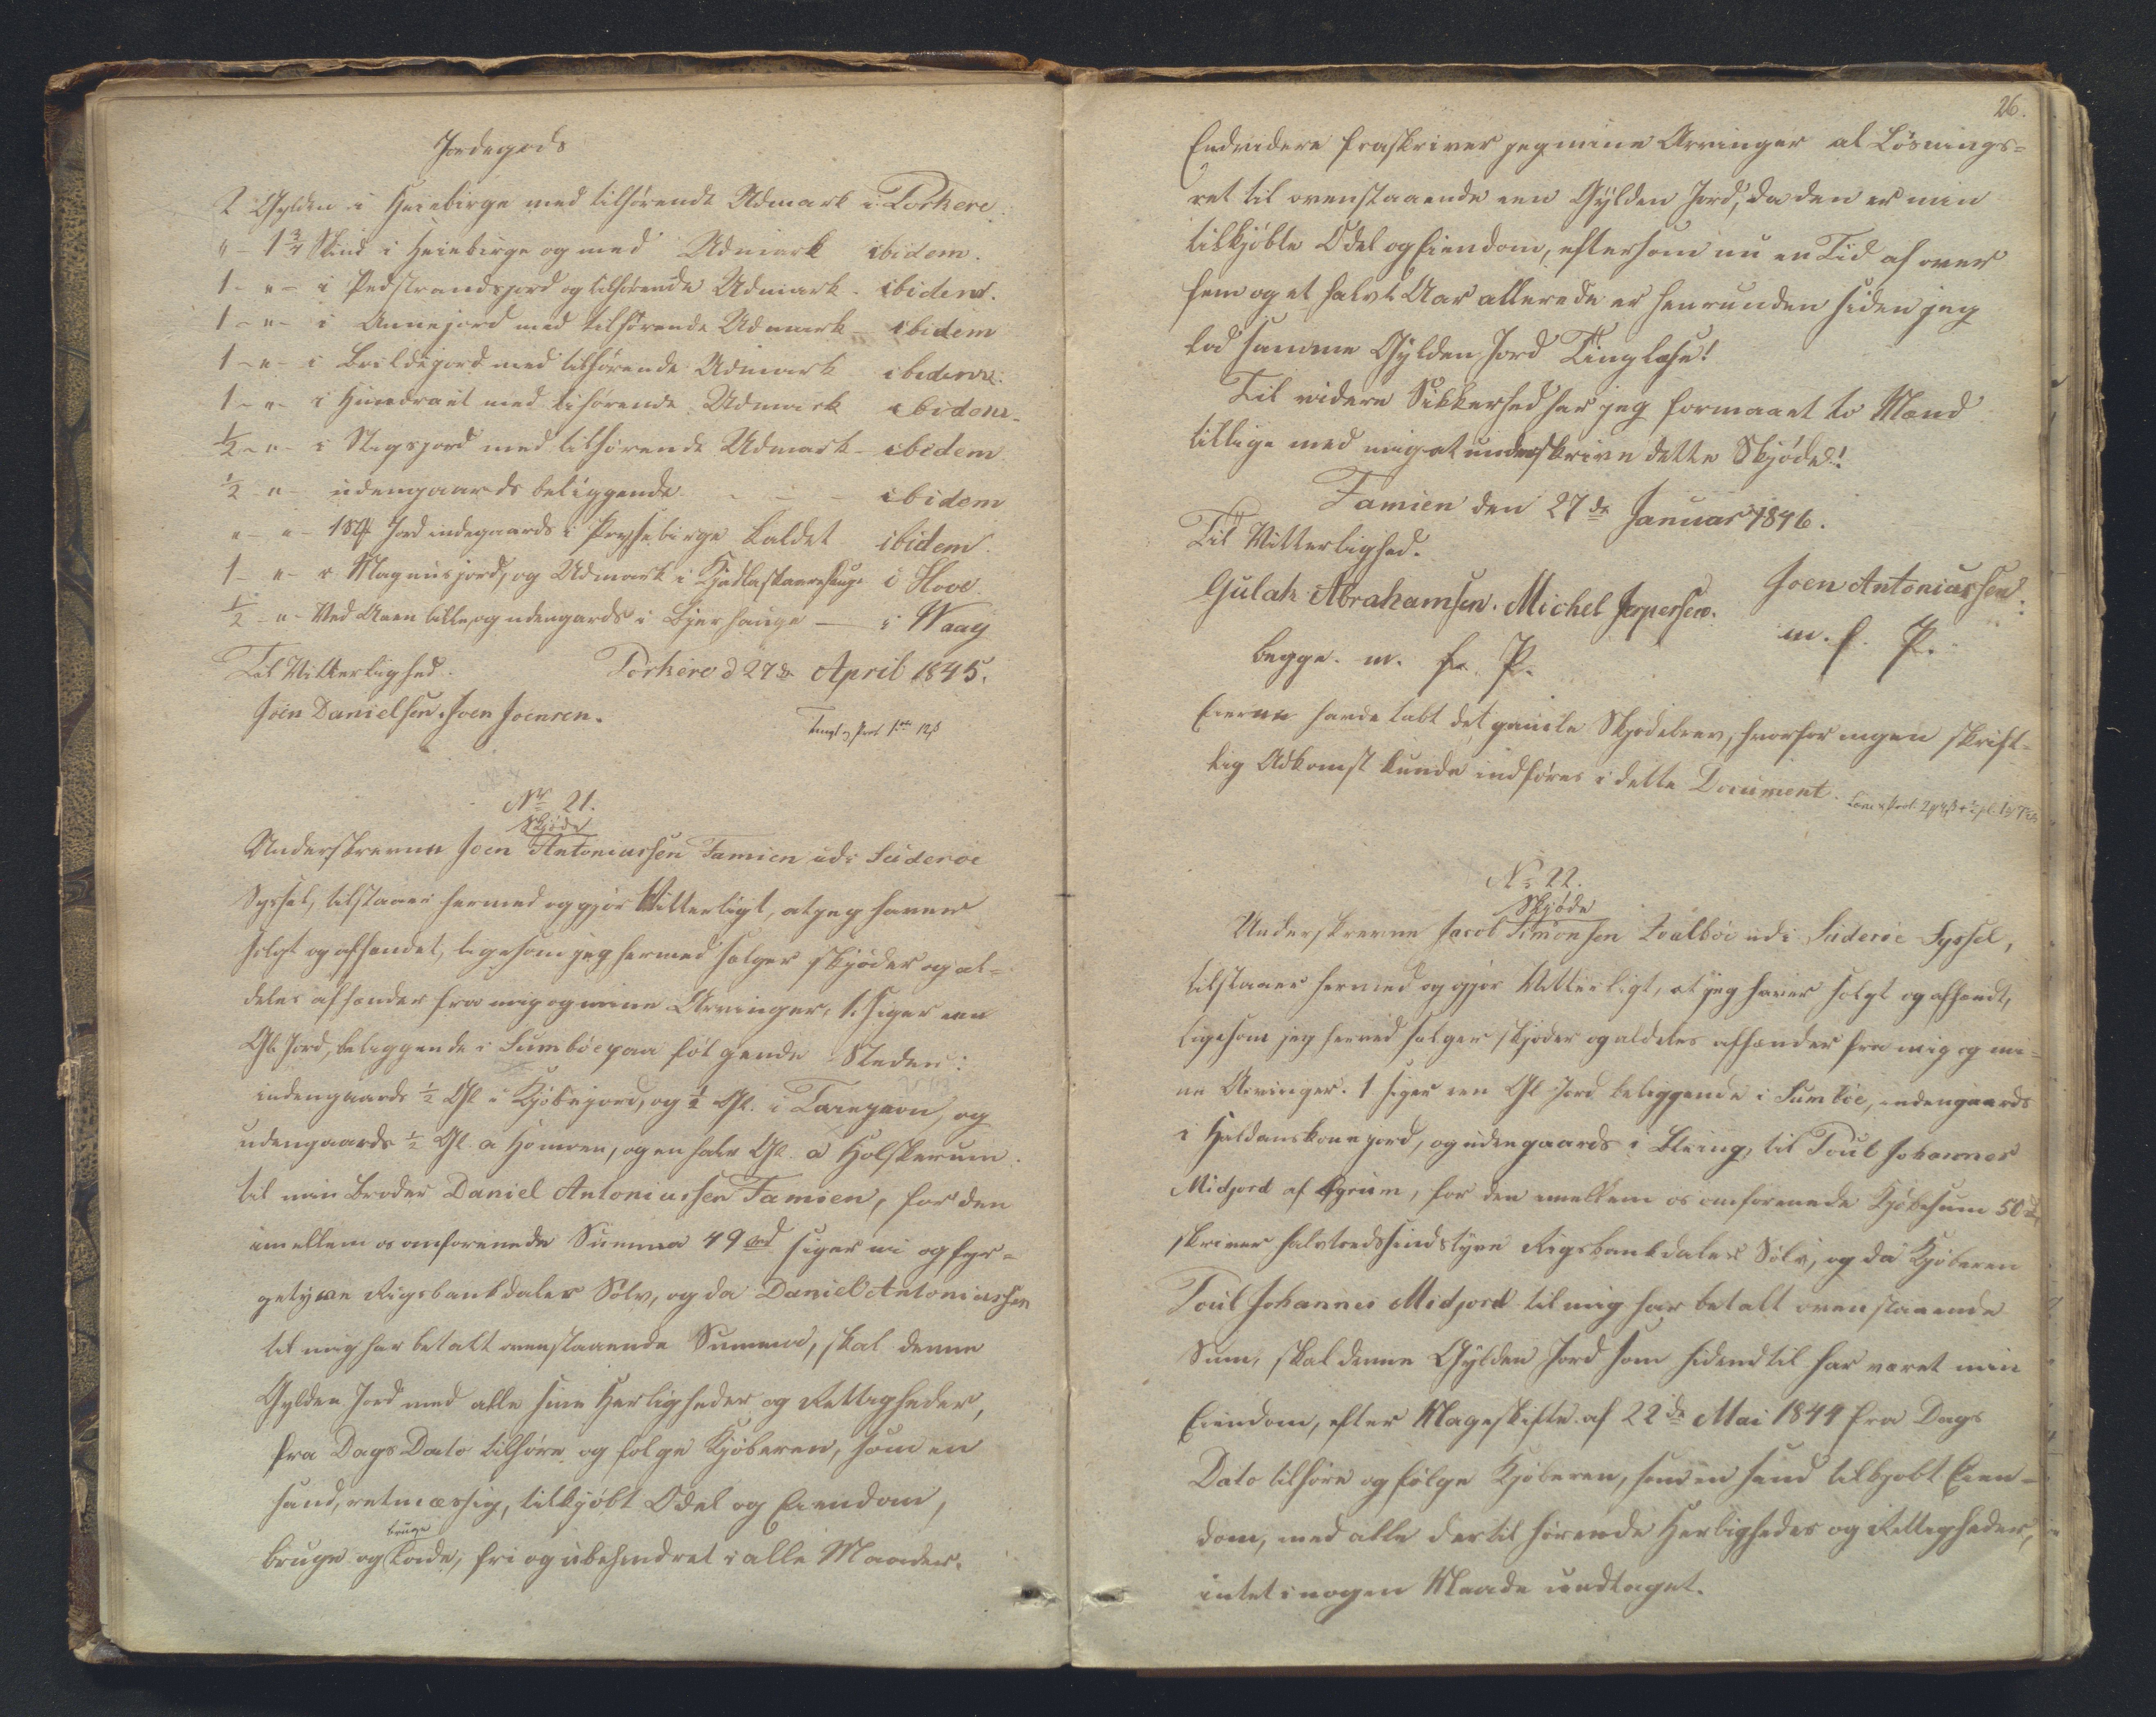 Jordegods
2 Gylden i Heiebirge med tilhørende Udmark i Porkere
" - 1 3/4 Skind i Heiebirge og med Udmark ibidem.
1 - " - i Pedstrandsjord og tilhørende Udmark - ibidem.
1 - " - i Annejord med tilhørende Udmark - ibidem
1 - " - i med tilhørende Udmark ibidem.
1 - " - i med tilhørende Udmark ibidem.
1/2 - " - i Stegsjord med tilhørende Udmark - ibidem
1/2 - " - udengaards beliggende - - - ibidem
" - " - Jord indegaards i kaldet ibidem.
1 - " - i Magnusjord, og Udmark i i Hove
1/2 - " - Ved Aaen lille, og udengards i — i Waag
Til Vitterlighed. Porkere d 27de April 1845.
Joen Danielsen. Joen Joensen.
No 21.
Skjøde
Underskrevne Joen Antoniussen Famien udi Süderöe
Syssel, tilstaaer hermed og gjør Vitterligt, at jeg haver
solgt og afhændet, ligesom jeg hermed sælger skjøder og al-
deles afhænder fra mig og mine Arvinger, 1 siger een
Gl. Jord, beliggende i Sumböe paa følgende Steder:
indengaards 1/2 Gl i Kjøbejord, og 1/2 Gl. i og
udengaards 1/2 Gl. a Homren, og en halv Gl. a Holskerum.
til min Broder Daniel Antoniussen Famien, for den
imellem os omforenede Summa 49 rbd siger ni og fyr-
getyve Rigsbankdaler Sølv, og da Daniel Antoniussen
til mig har betalt ovenstaaende Summa, skal denne
Gylden Jord med alle sine Herligheder og Rettigheder,
fra Dags Dato tilhøre og følge Kjøberen, som en
sand, retmæssig, tilkjøbt Odel og Eiendom,
bruge
bruge og lade, fri og ubehindret i alle Maader.
26.
Endvidere fraskriver jeg mine Arvinger al Løsnings-
ret til ovenstaaende een Gylden Jord, da den er min
tilkjøbte Odel og Eiendom, eftersom nu en Tid af over
fem og et halvt Aar allerede er henrunden siden jeg
lod samme Gylden Jord Tinglæse!
Til videre Sikkerhed har jeg formaaet to Mænd
tillige med mig at underskrive dette Skjøde!
Famien den 27de Januar 1846.
Til Vitterlighed.
Joen Antoniussen.
Gulak Abrahamsen. Michel Jespersen.
m. f. P.
begge. m. f. P.
Eieren havde tabt det gamle Skjødebrev, hvorfor ingen skrift-
lig Adkomst kunde indføres i dette Document.
No 22.
Skjøde
Underskrevne Jacob Simonsen udi Süderöe Syssel,
tilstaaer hermed og gjør Vitterligt, at jeg haver solgt og afhændt,
ligesom jeg herved sælger skjøder og aldeles afhænder fra mig og mi-
ne Arvinger. 1 siger een Gl Jord beliggende i Sumböe, indengaards
i Haldanskonejord, og udengaards i til Poul Johannes
Midjord af Ryrum, for den imellem os omforenede Kjøbesum 50
skriver halvtredsindstyve Rigsbankdaler Sølv, og da Kjøberen
Poul Johannes Midjord til mig har betalt ovenstaaende
Sum, skal denne Gylden Jord som hidindtil har været min
Eiendom, efter Mageskifte af 22de Mai 1844 fra Dags
Dato tilhøre og følge Kjøberen, som en sand tilkjøbt Eien-
dom, med alle dertil hørende Herligheder og Rettigheder,
intet i nogen Maade undtaget.